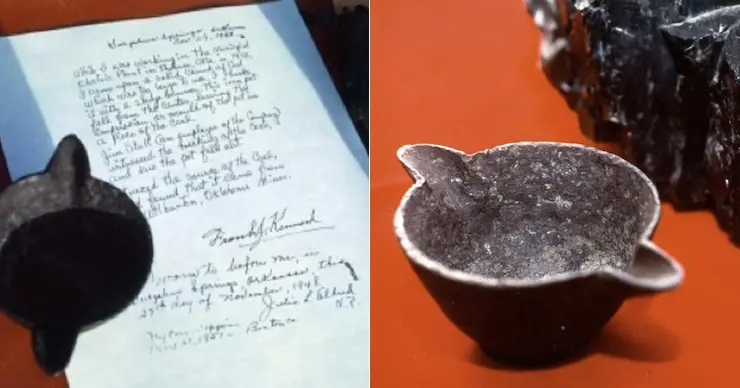 Sulphur Springs, Arkansas
Nov. 27, 1948
While I was working in the Municipal
Electric Plant in Thomas, Okla. in 1912,
I came upon a solid chunk of coal
which was too large to use. I
it with a sledge hammer. This iron pot
fell from the center, leaving the
impression or mould of the pot in
a piece of the coal.
Jim Stall (an employee of the Company)
witnessed the breaking of the coal,
and saw the pot fall out.
I traced the source of the coal,
and found that it came from
Wilburton, Oklahoma Mines.
Frank J. Kennard
Sworn to before me, in
Sulphur Springs, Arkansas, this
27th day of November, 1948
Julia L. Eldred
N.P.
Benton Co.